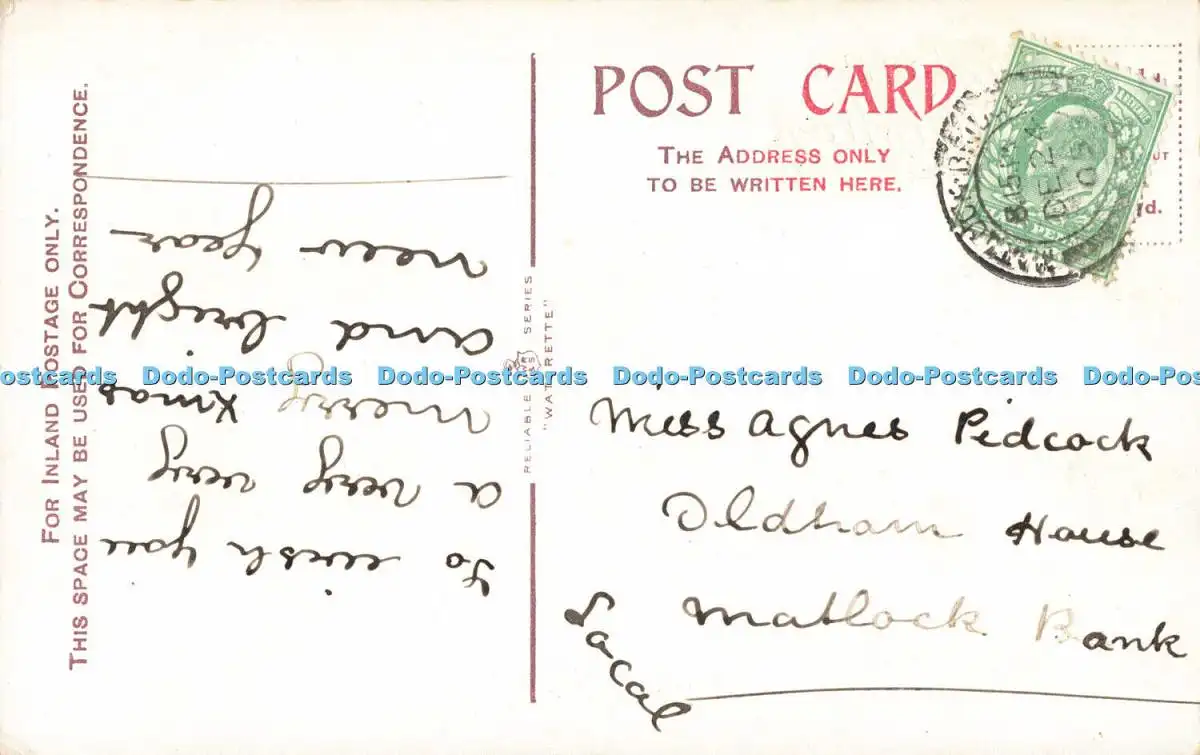 FOR INLAND POSTAGE ONLY.
THIS SPACE MAY BE USED FOR CORRESPONDENCE.
To wish you
a very very
merry Xmas
and bright
new year
RELIABLE SERIES
"WATERETTE"
POST CARD
THE ADDRESS ONLY
TO BE WRITTEN HERE.
MATLOCK BRIDGE
8 15 PM
DE 24
05
Miss Agnes Pidcock
Oldham House
Matlock Bank
Local
Dodo-Postcards Dodo-Postcards Dodo-Postcards Dodo-Postcards Dodo-Postcards